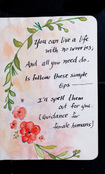 You can live a life
with no worries,
And all you need do,
Is follow these simple
tips
I'll spell them
out for you
(Guidance for
female humans)